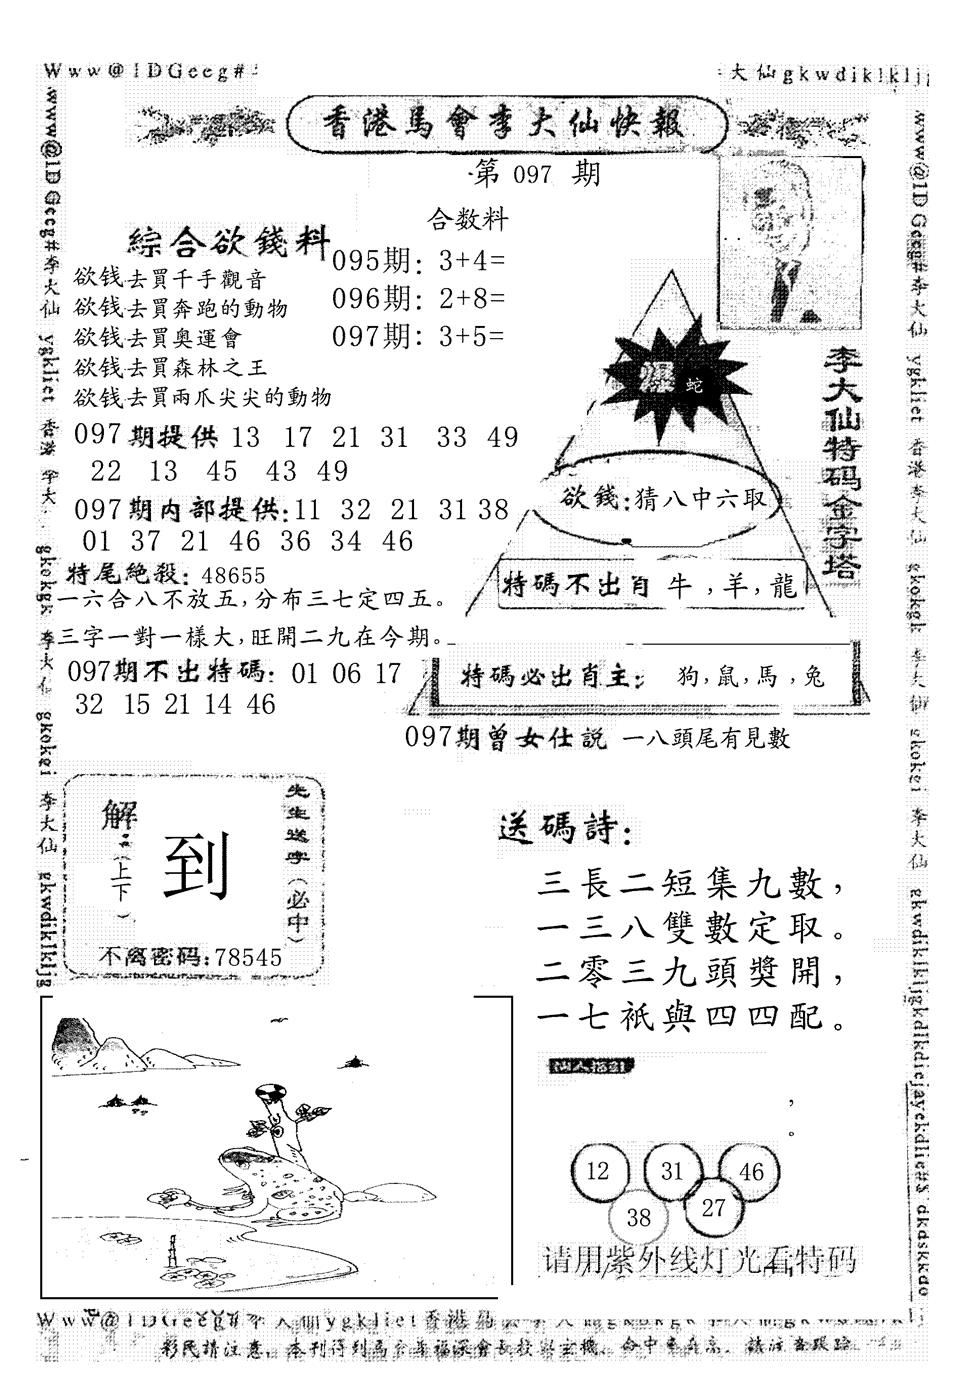 Www@1DGeeg#
大仙gkwdiklkljg
香港馬會李大仙快報
第 097 期
合数料
綜合欲錢料
095期: 3+4=
096期: 2+8=
097期: 3+5=
欲钱去買千手觀音
欲钱去買奔跑的動物
欲钱去買奧運會
欲钱去買森林之王
欲钱去買兩爪尖尖的動物
097期提供 13 17 21 31 33 49
22 13 45 43 49
097期内部提供:11 32 21 31 38
01 37 21 46 36 34 46
特尾絶殺: 48655
一六合八不放五,分布三七定四五。
三字一對一樣大,旺開二九在今期。
097期不出特碼: 01 06 17
32 15 21 14 46
爆 蛇
欲錢:猜八中六取
特碼不出肖 牛,羊,龍
特碼必出肖主: 狗,鼠,馬,兔
李大仙特码金字塔
097期曾女仕説 一八頭尾有見數
解
(上下)
到
先生送字(必中)
不离密码:78545
送碼詩:
三長二短集九數,
一三八雙數定取。
二零三九頭獎開,
一七衹與四四配。
,
。
12 31 46
38 27
请用紫外线灯光看特码
www@1DGeeg#李大仙 ygkliet 香港 李大 gkokgk 李大仙 gkokei 李大仙 gkwdiklkljg
www@1DGeeg#李大仙 ygkliet 香港李大仙 gkokgk 李大仙 gkokei 李大仙 gkwdiklkljgkdlkdiejayekdlie#$ dkdskkdo